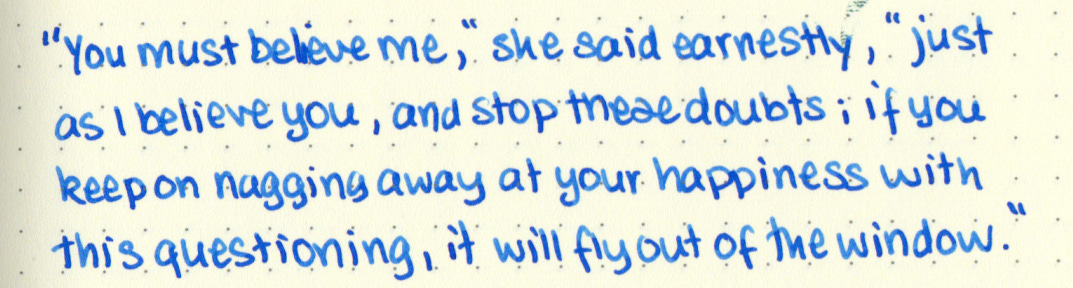 "You must believe me," she said earnestly, "just
as I believe you, and stop these doubts; if you
keep on nagging away at your happiness with
this questioning, it will fly out of the window."